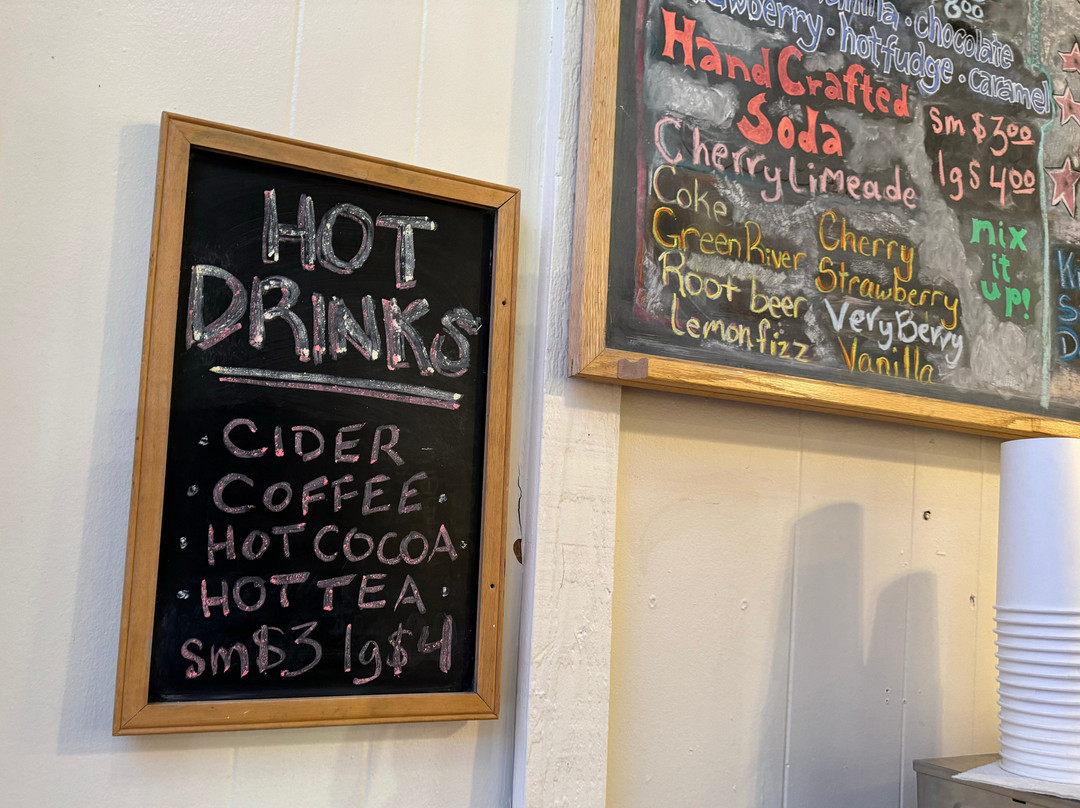 HOT
DRINKS
CIDER
COFFEE
HOT COCOA
HOT TEA
sm $3 lg $4
800
vanilla · chocolate
hotfudge · caramel
Hand Crafted
Soda
sm $3.00
lg $4.00
Cherry Limeade
Coke
Green River
Root beer
lemon fizz
Cherry
Strawberry
Very Berry
Vanilla
mix
it
up!